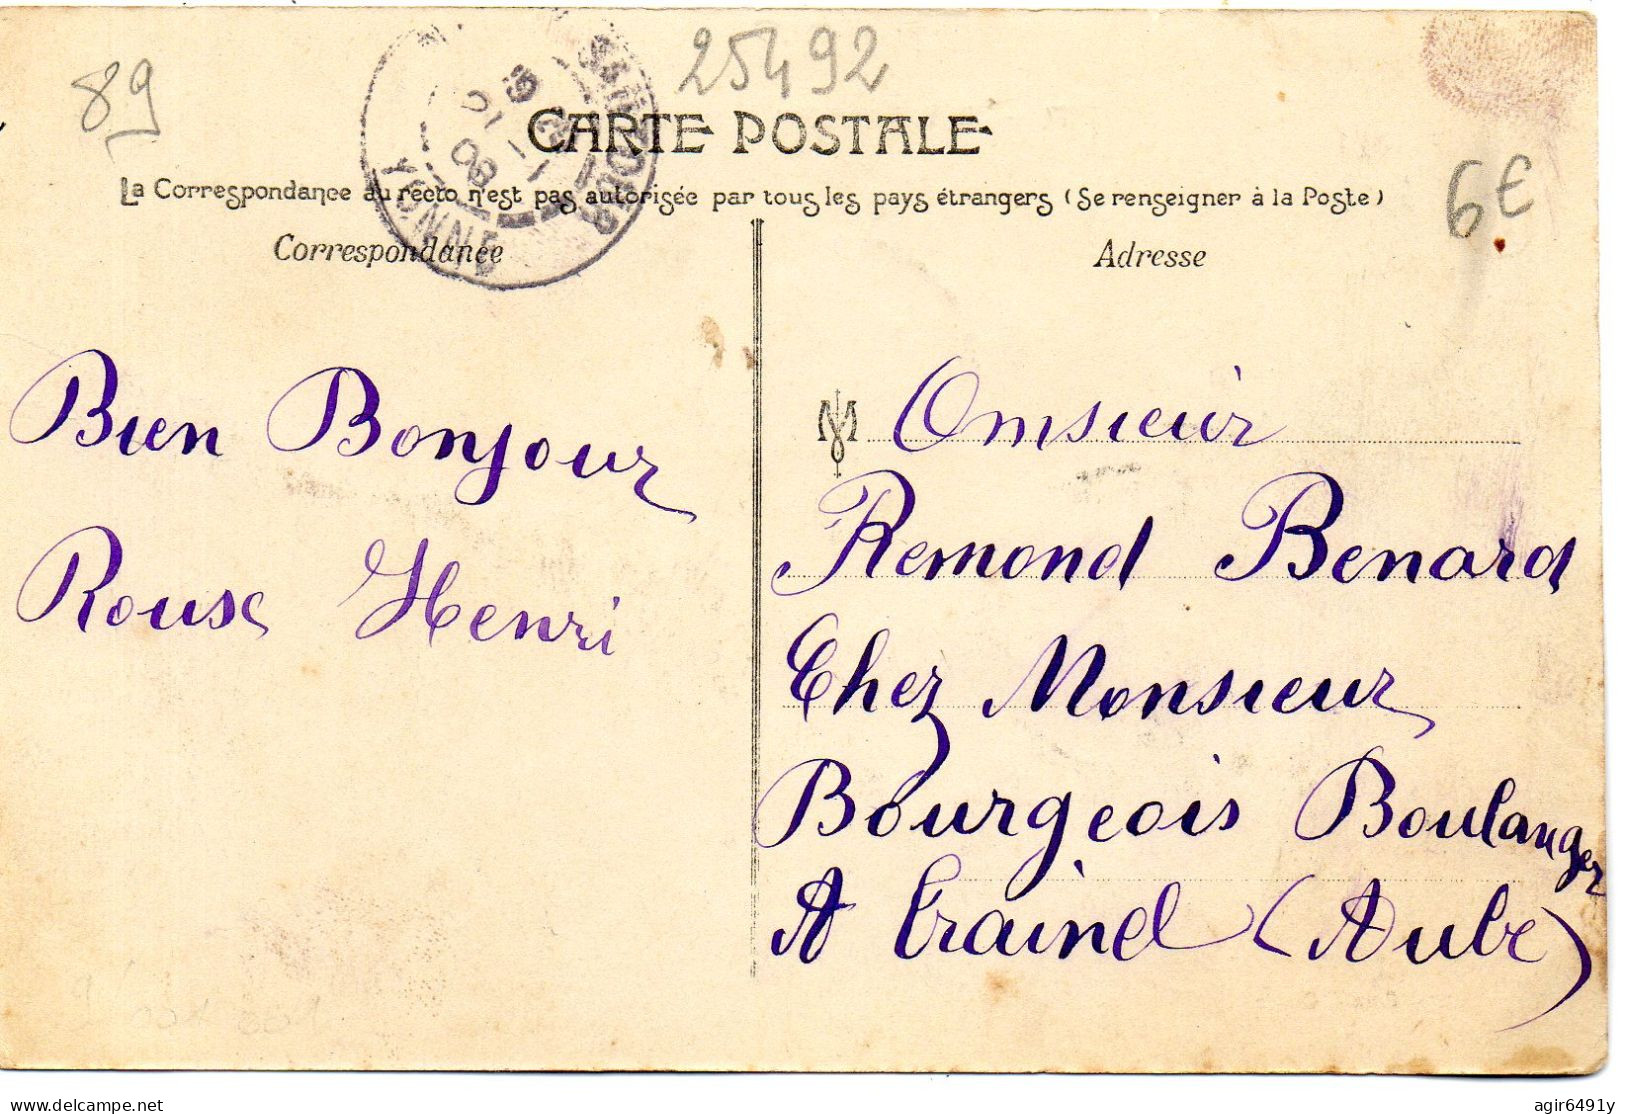 89
25492
CARTE POSTALE
La Correspondance au recto n'est pas autorisée par tous les pays étrangers (Se renseigner à la Poste)
6€
YONNE
Correspondance
Adresse
Bien Bonjour
Rouse Henri
M onsieur
Remond Benard
Chez Monsieur
Bourgeois Boulanger
A Trainel (Aube)
www.delcampe.net
agir6491y